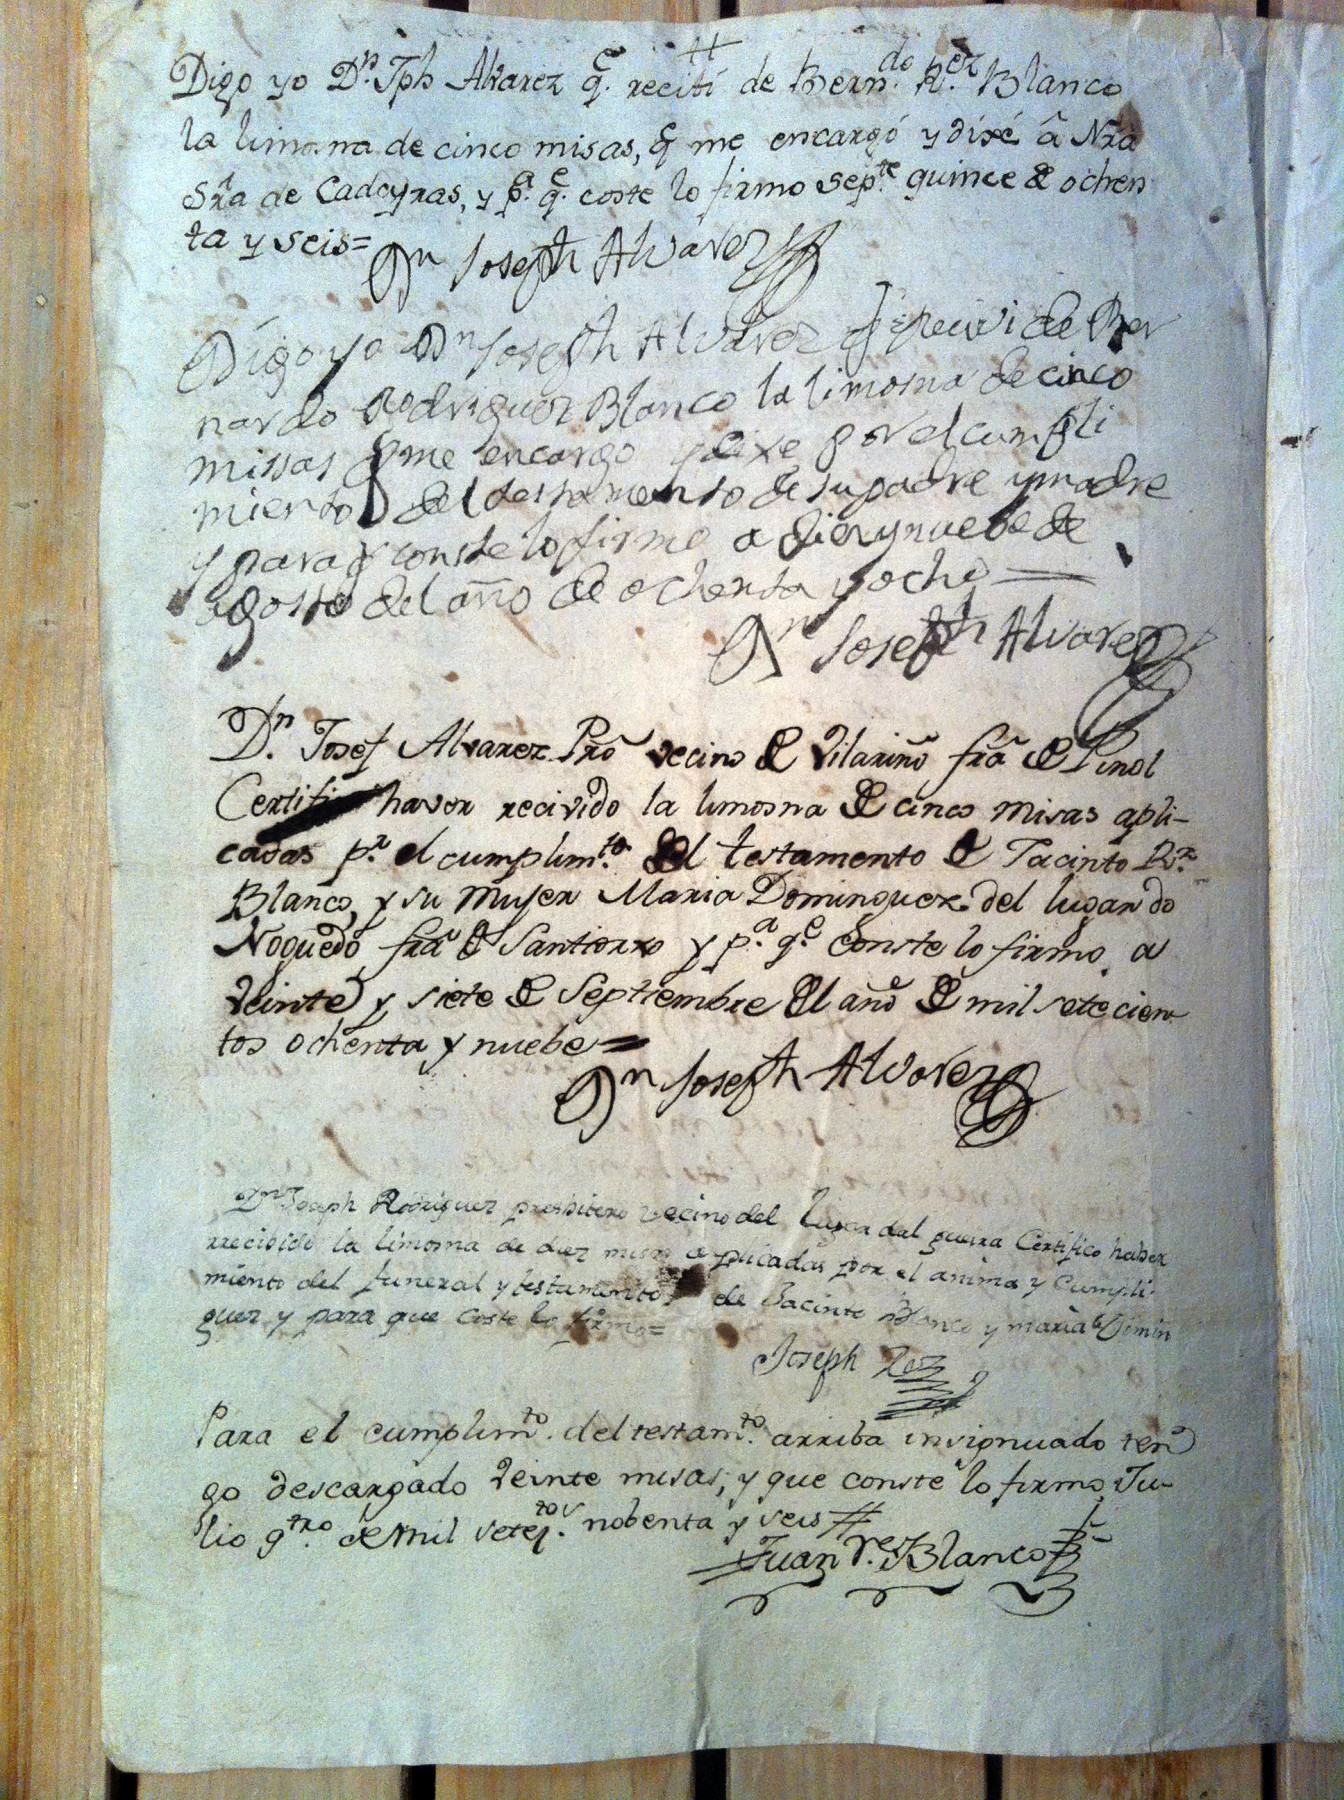 Digo yo Dn. Jph Alvarez qe. recití de Berndo. Rez. Blanco
la limosna de cinco misas, q me encargó y dixé â Nra
Sra de Cadeyras, y pa. qe. coste lo firmo septe. quince de ochen
ta y seis=
Dn Joseph Alvarez
Digo yo Dn Joseph Alvarez q Recivi de Ber
nardo Rodriguez Blanco la limosna de cinco
missas q me encargo y dixe por el cumpli
miento del testamento de su padre y madre
y para q conste lo firmo a diez y nuebe de
agosto del año de ochenta y ocho =
Dn Joseph Alvarez
Dn. Josef Alvarez Pro vecino de Vilariño fra de Pinol
Certifico haver recivido la limosna de cinco misas apli-
cadas pa. el cumplimto. del testamento de Jacinto Rz.
Blanco, y su Muger Maria Dominguez del lugar do
Noguedo fra de Santiorxo y pa. qe conste lo firmo a
veinte y siete de Septiembre del año de mil setecien
tos ochenta y nuebe=
Dn Joseph Alvarez
Dn Joseph Rodriguez presbitero vecino del lugar dal queira Certifico haber
rrecibido la limosna de diez misas aplicadas por el anima y Cumpli-
miento del funeral y testamento de Jacinto Blanco y maria Domin
guez y para que coste lo firmo=
Joseph Roz
Para el cumplimto. del testamto. arriba insignuado ten
go descargado veinte misas, y que conste lo firmo, Ju-
lio qtro. de Mil setezto. nobenta y seis #
Juan Re. Blanco